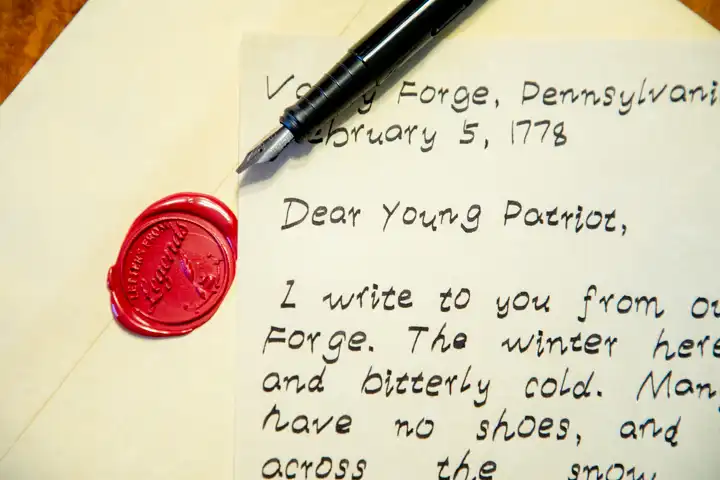 Forge, Pennsylvani
ebruary 5, 1778
Dear Young Patriot,
I write to you from
Forge. The winter here
and bitterly cold. Many
have no shoes, and
across the snow
LETTERS FROM
Legends